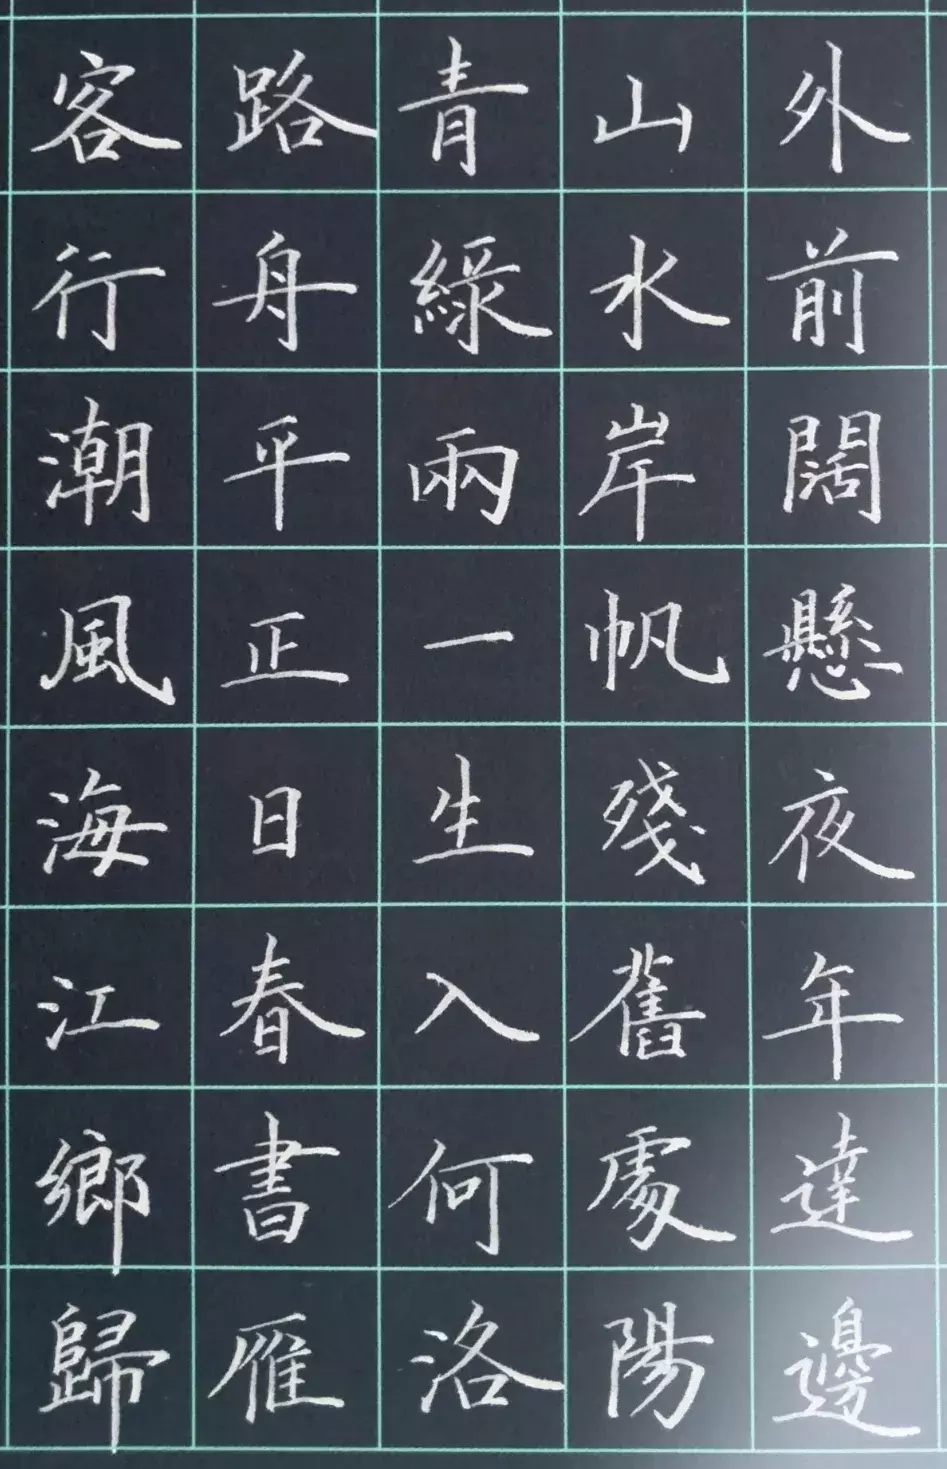 客路青山外
行舟綠水前
潮平兩岸闊
風正一帆懸
海日生殘夜
江春入舊年
鄉書何處達
歸雁洛陽邊